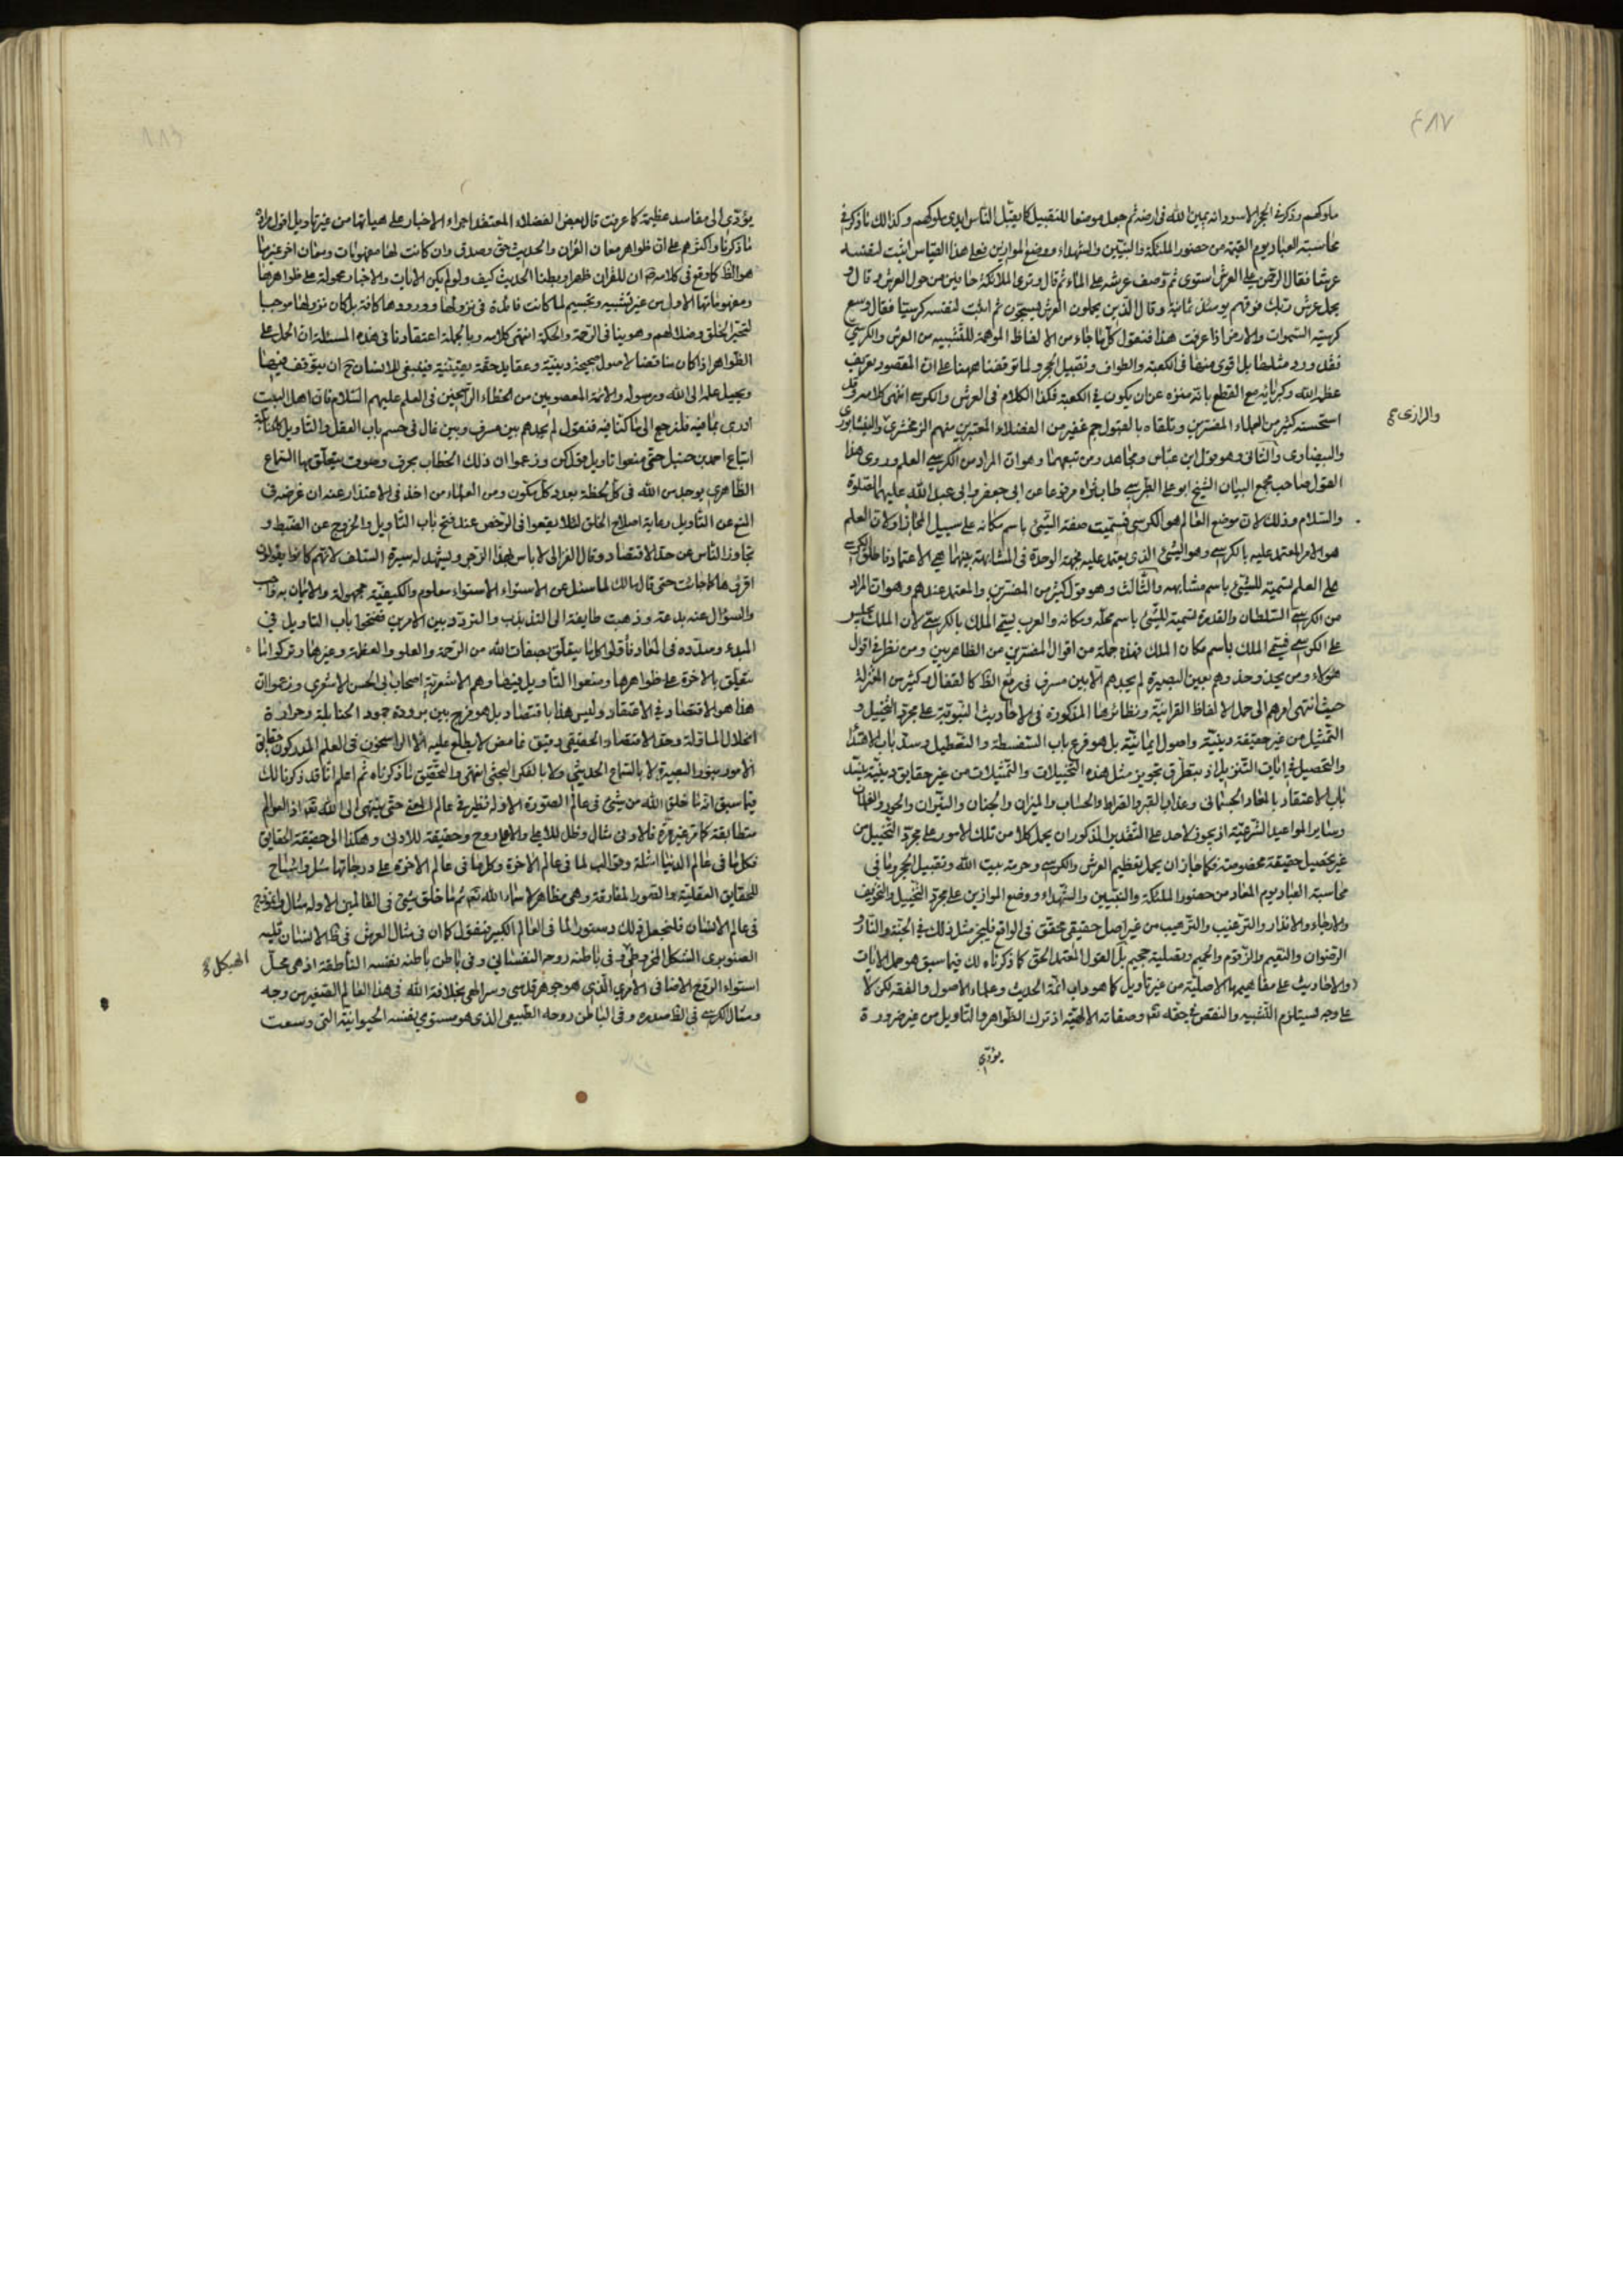 ٤٨٧
ملوكهم وذكر في الحجر الاسود انه يمين الله في ارضه ثم جعل موضعا للتقبيل كما يقبل الناس ايدي ملوكهم وكذلك ما ذكر في
محاسبة العباد يوم القيمة من حضور الملئكة والنبيين والشهداء ووضع الموازين فعلى هذا القياس اثبت لنفسه
عرشا فقال الرحمن على العرش استوى ثم وصف عرشه على الماء ثم قال وترى الملائكة حافين من حول العرش وقال و
يحمل عرش ربك فوقهم يومئذ ثمانية وقال الذين يحملون العرش يسبحون ثم اثبت لنفسه كرسيا فقال وسع
كرسيه السموات والارض اذا عرفت هذا فنقول كل ما جاء من الالفاظ الموهمة للتشبيه من العرش والكرسي
فقد ورد مثلها بل اقوى منها في الكعبة والطواف وتقبيل الحجر ولما توقفنا ههنا على ان المقصود تعريف
عظمة الله وكبريائه مع القطع بانه منزه عن ان يكون في الكعبة فكذا الكلام في العرش والكرسي انتهى كلامه وقد
استحسنه كثير من العلماء المفسرين وتلقاه بالقبول جم غفير من الفضلاء المعتبرين منهم الزمخشري والنيشابوري
والرازي صح
والبيضاوي والثاني وهو قول ابن عباس ومجاهد ومن تبعهما وهو ان المراد من الكرسي العلم وروى هذا
القول صاحب مجمع البيان الشيخ ابو علي الطبرسي طاب ثراه مرفوعا عن ابي جعفر وابي عبد الله عليهما الصلوة
والسلام وذلك لان موضع العالم هو الكرسي فسميت صفة الشيء باسم مكانه على سبيل المجاز او لان العلم
هو الامر المعتمد عليه بالكرسي وهو الشيء الذي يعتمد عليه فجهة الوحدة في المشابهة بينهما هي الاعتماد فاطلق الكرسي
على العلم تسمية للشيء باسم مشابهه والثالث وهو قول كثير من المفسرين والمعتمد عندهم وهو ان المراد
من الكرسي السلطان والقدرة تسمية للشيء باسم محله ومكانه والعرب يسمي الملك بالكرسي لان الملك يجلس
على الكرسي فيسمى الملك باسم مكان الملك فهذه جملة من اقوال المفسرين من الظاهريين ومن نظر في اقوال
هؤلاء ومن يحذو حذوهم بعين البصيرة لم يجدهم الا بين مسرف في رفع الظ كالقفال وكثير من المعتزلة
حيث انتهى امرهم الى حمل الالفاظ القرانية ونظائرها المذكورة في الاحاديث النبوية على مجرد التخييل و
التمثيل من غير حقيقة دينية واصول ايمانية بل هو قرع باب السفسطة والتعطيل وسد باب الاهتداء
والتحصيل في ايات التنزيل اذ يتطرق تجويز مثل هذه التخييلات والتمثيلات من غير حقايق دينية يسد
باب الاعتقاد بالمعاد الجسماني وعذاب القبر والصراط والحساب والميزان والجنان والنيران والحور والغلمان
وساير المواعيد الشرعية اذ يجوز لاحد على التقدير المذكور ان يحمل كلا من تلك الامور على مجرد التخييل من
غير تحصيل حقيقة مخصوصة فكما جاز ان يحمل تعظيم العرش والكرسي وحرمة بيت الله وتقبيل الحجر وما في
محاسبة العباد يوم المعاد من حضور الملئكة والنبيين والشهداء ووضع الموازين على مجرد التخييل والتخويف
والارجاء والانذار والترغيب والترهيب من غير اصل حقيقي محقق في الواقع فليجز مثل ذلك في الجنة والنار و
الرضوان والنعيم والزقوم والحميم وتصلية جحيم بل القول المعتمد الحق كما ذكرناه لك فيما سبق هو حمل الايات
والاحاديث على مفاهيمها الاصلية من غير تاويل كما هو داب ائمة الحديث وعلماء الاصول والفقه لكن لا
على وجه يستلزم التشبيه والنقص في حقه تع وصفاته الالهية اذ ترك الظواهر والتاويل من غير ضرورة
يؤدي
يؤدي الى مفاسد عظيمة كما عرفت قال بعض الفضلاء المعتقد اجراء الاخبار على هيأتها من غير تاويل اقول مراده
ما ذكرنا واكثرهم على ان ظواهر معان القران والحديث حق وصدق وان كانت لها مفهومات ومعان اخر غير ما
هو الظ كما وقع في كلامه ص ان للقران ظهرا وبطنا الحديث كيف ولو لم يكن الايات والاخبار محمولة على ظواهرها
ومفهوماتها الاول من غير تشبيه وتجسيم لما كانت فائدة في نزولها وورودها كافة بل كان نزولها موجبا
لتحير الخلق وضلالهم وهو ينافي الرحمة والحكمة انتهى كلامه وبالجملة اعتقادنا في هذه المسئلة ان الحمل على
الظواهر اذا كان مناقضا لاصول صحيحة دينية وعقايد حقة يقينية فينبغي للانسان ح ان يتوقف فيها
ويحيل علمه الى الله ورسوله والائمة المعصومين من الخطاء الراسخين في العلم عليهم السلام فان اهل البيت
ادرى بما فيه فلنرجع الى ما كنا فيه فنقول لم يجدهم بين مسرف وبين غال في حسم باب العقل والتاويل كالحنابلة
اتباع احمد بن حنبل حتى منعوا تاويل قول كن وزعموا ان ذلك الخطاب بحرف وصوت يتعلق بها السماع
الظاهري يوجد من الله في كل لحظة بعدد كل مكون ومن العلماء من اخذ في الاعتذار عنه ان غرضه في
المنع عن التاويل رعاية اصلاح الخلق لئلا يقعوا في الرخص عند فتح باب التاويل والخروج عن الضبط و
تجاوز الناس عن حد الاقتصاد وقال الغزالي لا باس لهذا الزجر ويشهد له سيرة السلف لانهم كانوا يقولون
اقرؤها كما جائت حتى قال مالك لما سئل عن الاستواء الاستواء معلوم والكيفية مجهولة والايمان به واجب
والسؤال عنه بدعة وذهبت طايفة الى التذبذب والتردد بين الامرين ففتحوا باب التاويل في
المبدء وسدوه في المعاد فأولوا كل ما يتعلق بصفات الله من الرحمة والعلو والعظمة وغيرها وتركوا ما
يتعلق بالاخرة على ظواهرها ومنعوا التاويل فيها وهم الاشعرية اصحاب ابي الحسن الاشعري وزعموا ان
هذا هو الاقتصاد في الاعتقاد وليس هذا باقتصاد بل هو مزج بين برودة جمود الحنابلة وحرارة
انحلال الماولة وحد الاقتصاد الحقيقي دقيق غامض لا يطلع عليه الا الراسخون في العلم المدركون حقايق
الامور بنور البصيرة لا بالسماع الحديثي ولا بالفكر البحثي انتهى والتحقيق ما ذكرناه ثم اعلم انا قد ذكرنا لك
فيما سبق انه ما خلق الله من شيء في عالم الصورة الا وله نظير في عالم المعنى حتى ينتهي الى الله تعه اذ العوالم
متطابقة كما مر غير مرة فالادنى مثال وظل للاعلى والاعلى روح وحقيقة للادنى وهكذا الى حقيقة الحقايق
فكل ما في عالم الدنيا امثلة وقوالب لما في عالم الاخرة وكل ما في عالم الاخرة على درجاتها مثل واشباح
للحقايق العقلية والصور المفارقة وهي مظاهر لاسماء الله تعه ثم ما خلق شيء في العالمين الا وله مثال وانموذج
في عالم الانسان فلنجعل ذلك دستورا لما في العالم الكبير فنقول كما ان في مثال العرش في ظ الانسان قلبه
الصنوبري الشكل المخروطي وفي باطنه روحه النفساني وفي باطن باطنه نفسه الناطقة اذ هي محل
الهيكل
استواء الروح الاضافي الامري الذي هو جوهر قدسي وسر الهي بخلافة الله في هذا العالم الصغير من وجه
ومثال الكرسي في الظ صدره وفي الباطن روحه الطبيعي الذي هو مستوي نفسه الحيوانية التي وسعت